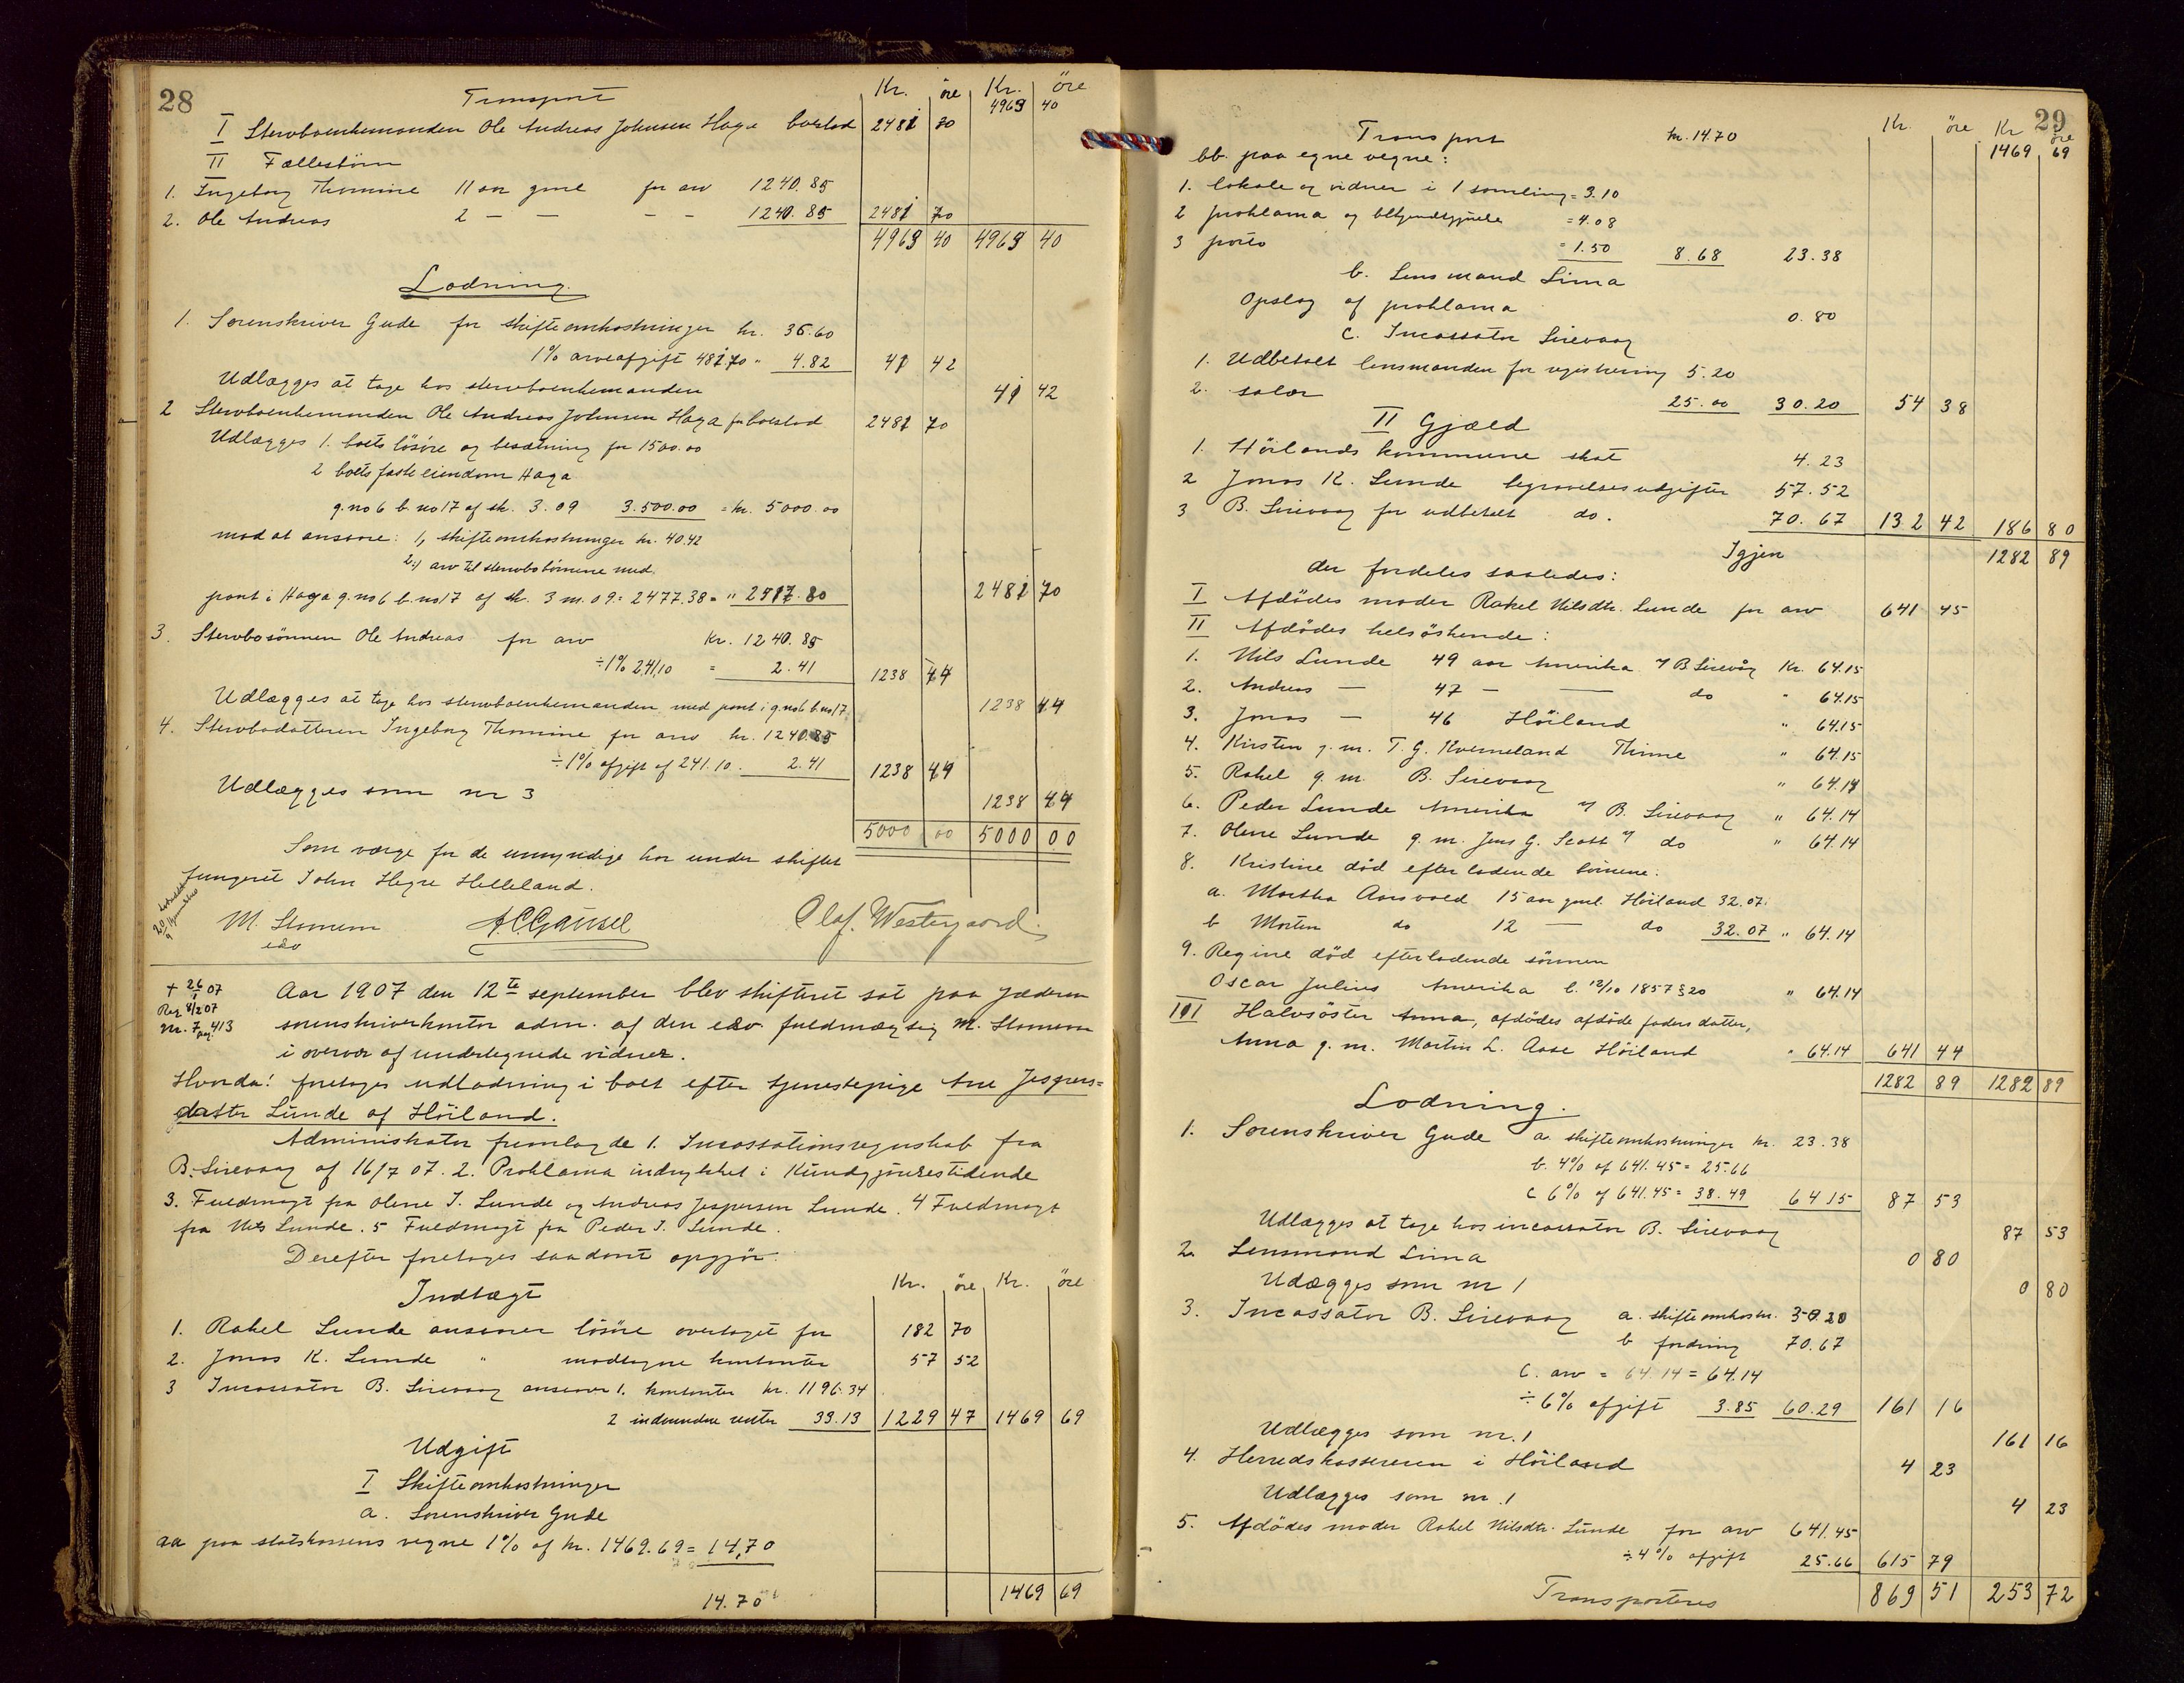 28
Transport
Kr. öre Kr. öre
4963 40
I Stervboenkemanden Ole Andreas Johnsen Haga boeslod 2481 70
II Fællesbörn
1. Ingeborg Thomine 11 aar gml for arv 1240.85
2. Ole Andreas 2 — — — — 1240.85 2481 70
4963 40 4963 40
Lodning.
1. Sorenskriver Gude for skifteomkostninger kr. 36.60
1% arveafgift 481.70 " 4.82 41 42
Udlægges at tage hos stervboenkemanden 41 42
2 Stervboenkemanden Ole Andreas Johnsen Haga for boeslod 2481 70
Udlægges 1. boets lösöre og besætning for 1500.00
2 boets faste eiendom Haga
g.no 6 b.no 17 af sk. 3.09 3.500.00 = kr. 5000.00
mod at ansvare: 1, skifteomkostninger kr. 40.42
2, arv til stervbobörnene med
pant i Haga g.no 6 b.no 17 af sk. 3 m. 09 = 2477.38 = " 2517.80 2481 70
3. Stervbosönnen Ole Andreas for arv Kr. 1240.85
÷ 1% 241,10 = 2.41 1238 44
Udlægges at tage hos stervboenkemanden med pant i g.no 6 b.no 17 1238 44
4. Stervbodatteren Ingeborg Thomine for arv kr. 1240.85
÷ 1% afgift af 241.10. 2.41 1238 44
Udlægges som nr 3 1238 44
5000 00 5000 00
Som værge for de umyndige har under skiftet
fungeret John Hegre Helleland.
M. Stomem
edv
A.C. Gausel
Olaf. Westergaard.
+ 26/1 07
Reg 8/2 07
nr. 7 pag. 413
Aar 1907 den 12te september blev skifteret sat paa Jæderen
sorenskriverkontor adm. af den edsv. fuldmægtig M. Stomem
i overvær af undertegnede vidner.
Hvorda! foretoges udlodning i boet efter tjenestepige Ane Jespers=
datter Lunde af Höiland.
Administrator fremlagde 1. Incassationsregnskab fra
B. Sirevaag af 16/7 07. 2. Proklama indrykket i Kundgjörelsestidende
3. Fuldmagt fra Olene J. Lunde og Andreas Jespersen Lunde. 4 Fuldmagt
fra Nils Lunde. 5 Fuldmagt fra Peder J. Lunde.
Derefter foretoges saadant opgjör.
Indtægt
Kr. öre Kr. öre
1. Rakel Lunde ansvarer lösöre overtaget for 182 70
2. Jonas K. Lunde " modtagne kontanter 57 52
3 Incassator B. Sirevaag ansvarer 1. kontanter kr. 1196.34
2 indvundne renter 33.13 1229 47 1469 69
Udgift
I Skifteomkostninger
a. Sorenskriver Gude
aa paa statskassens vegne 1% af kr. 1469.69 = 14,70
14.70 1469 69
29
Transport kr. 14.70
Kr. öre Kr öre
1469 69
bb. paa egne vegne:
1. lokale og vidner i 1 samling = 3.10
2 proklama og bekjendtgjörelse = 4.08
3 porto = 1.50 8.68 23.38
b. Lensmand Lima
Opslag af proklama 0.80
c. Incassator Sirevaag
1. Udbetalt lensmanden for registrering 5.20
2. salær 25.00 30.20 54 38
II Gjæld
1. Höilands kommune skat 4.23
2 Jonas K. Lunde begravelsesudgifter 57.52
3 B. Sirevaag for udbetalt do. 70.67 132 42 186 80
Igjen 1282 89
der fordeles saaledes:
I Afdödes moder Rakel Nilsdtr. Lunde for arv 641 45
II Afdödes helsöskende:
1. Nils Lunde 49 aar Amerika v/ B. Sirevåg Kr. 64.15
2. Andreas — 47 — — do " 64.15
3. Jonas — 46 Höiland " 64.15
4. Kirsten g.m. T. G. Kverneland Thime " 64.15
5. Rakel g.m. B. Sirevaag " 64.14
6. Peder Lunde Amerika v/ B. Sirevaag " 64.14
7. Olene Lunde g.m. Jens G. Scott v/ do " 64.14
8. Kristine död efterladende börnene:
a. Martha Aarsvold 15 aar gml. Höiland 32.07
b Morten do 12 — do 32.07 " 64.14
9. Regine död efterladende sönnen
Oscar Julius Amerika l. 12/10 1857 § 20 " 64.14
III Halvsöster Anna, afdödes afdöde faders datter,
Anna g.m. Martin L. Aase Höiland " 64.14 641 44
1282 89 1282 89
Lodning.
1. Sorenskriver Gude a. skifteomkostninger kr. 23.38
b. 4% af 641.45 = 25.66
c 6% af 641.45 = 38.49 64 15 87 53
Udlægges at tage hos incassator B. Sirevaag 87 53
2. Lensmand Lima 0 80
Udlægges som nr 1 0 80
3. Incassator B. Sirevaag a. skifteomkostn. 30.20
b fordring 70.67
c. arv = 64.14 = 64.14
÷ 6% afgift 3.85 60.29 161 16
Udlægges som nr. 1 161 16
4. Herredskassereren i Höiland 4 23
Udlægges som nr. 1 4 23
5. Afdödes moder Rakel Nilsdtr. Lunde for arv 641.45
÷ 4% afgift 25.66 615 79
Transporteres 869 51 253 72